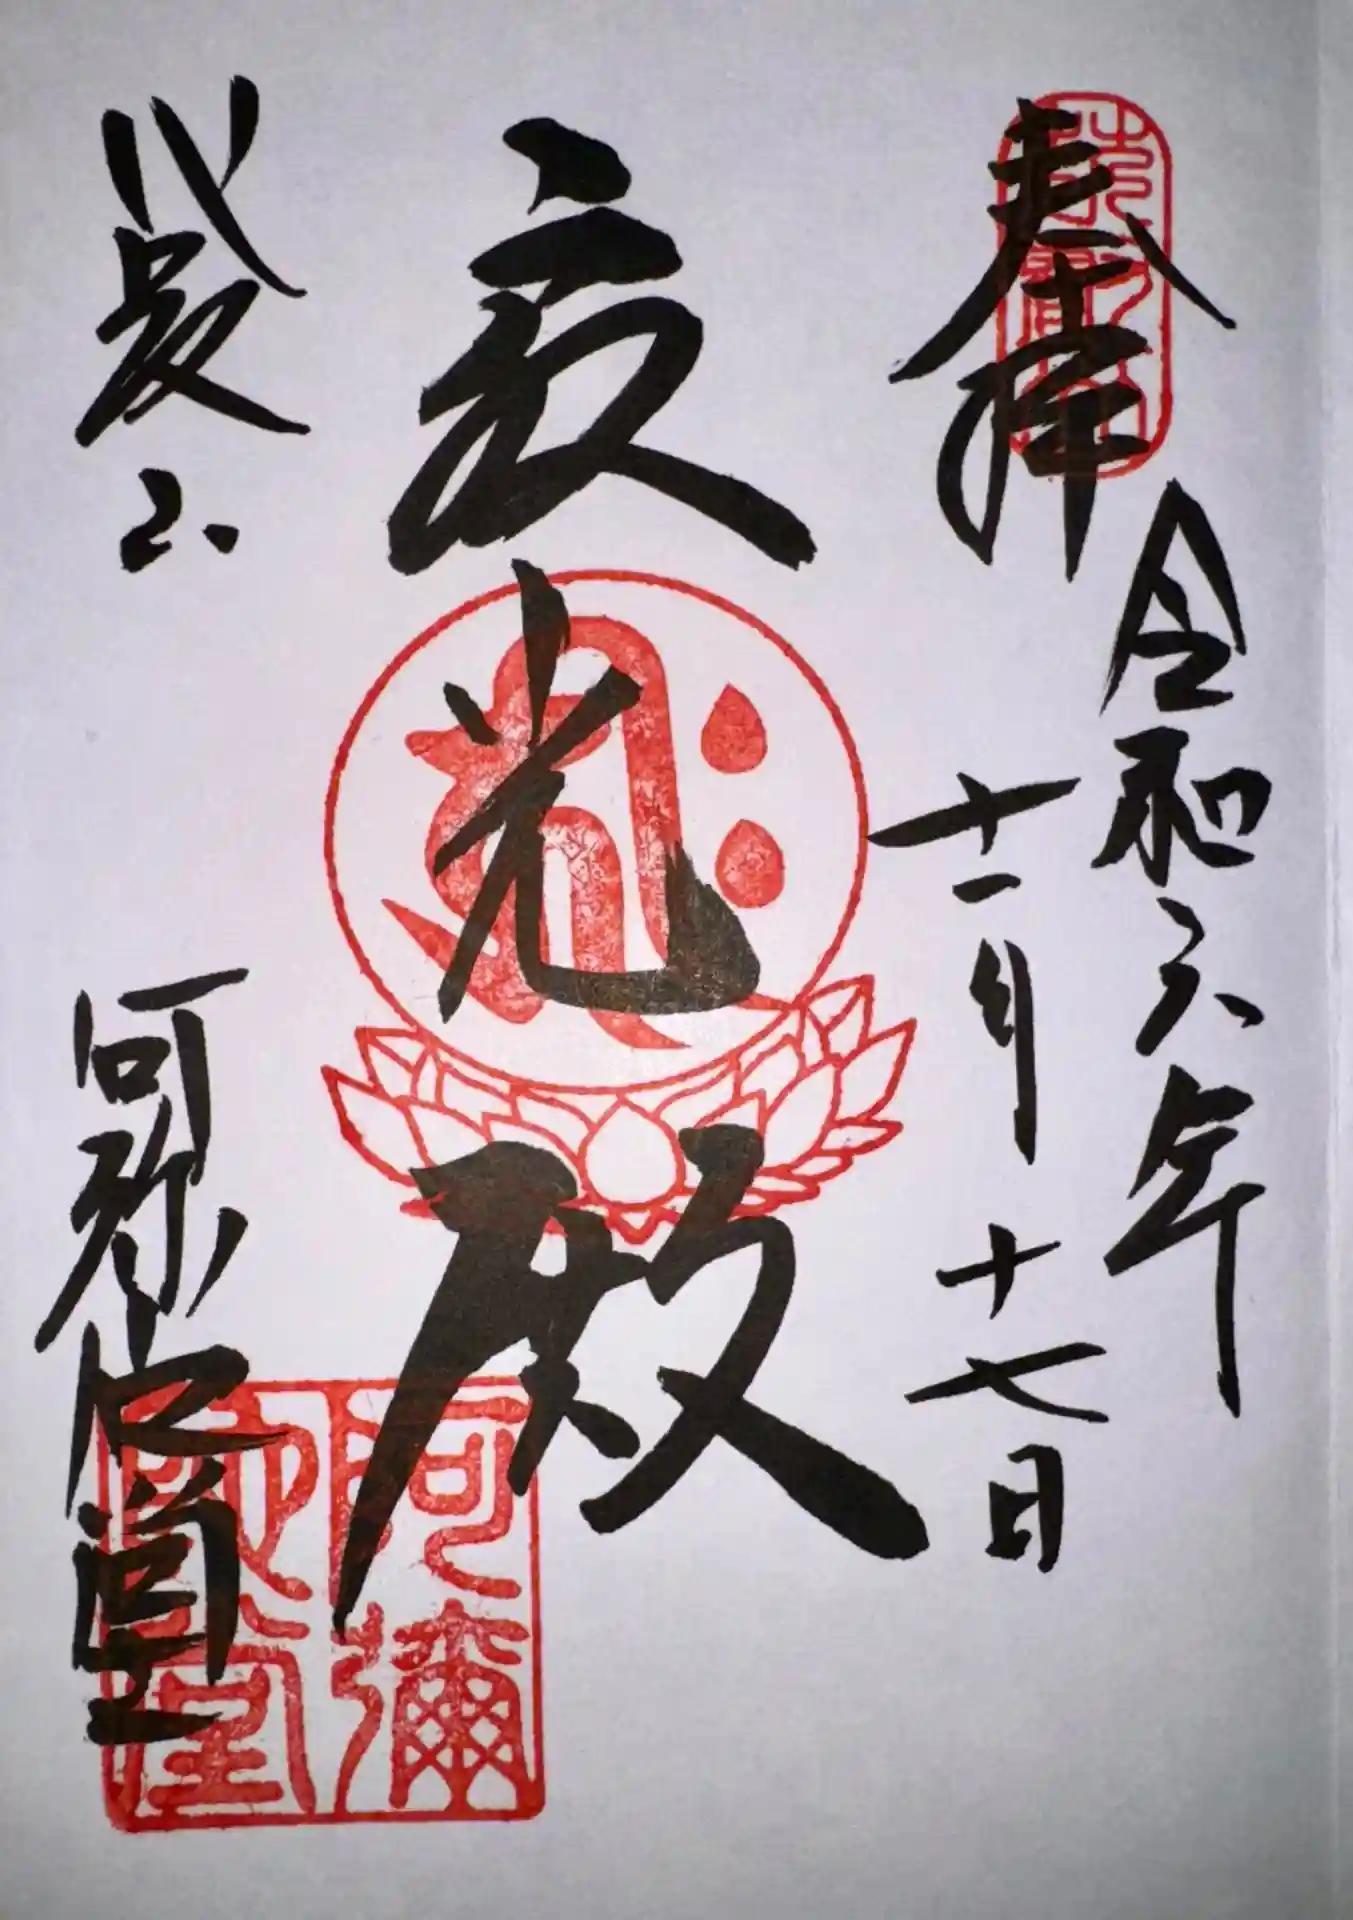 奉拝
令和六年
十一月十七日
光殿
山
阿弥陀堂
阿彌陀堂